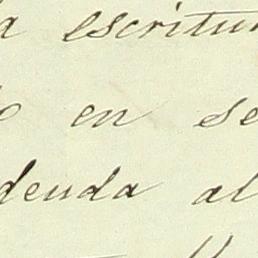 a escritur
o en se
deuda al